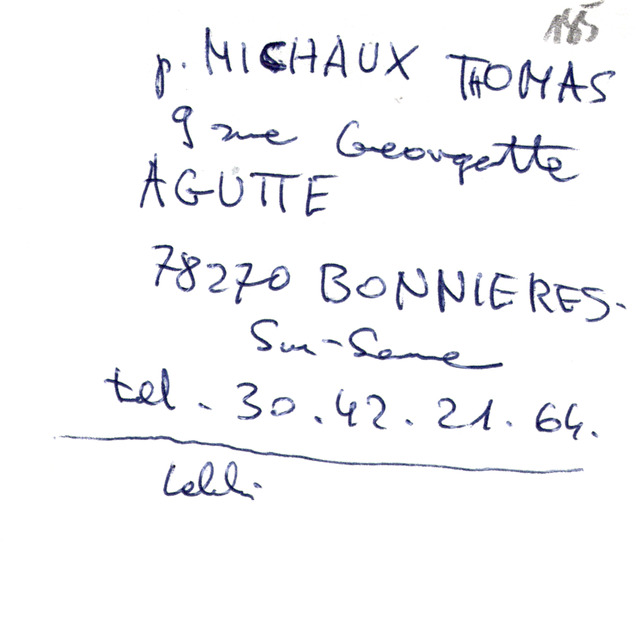 185
p. MICHAUX THOMAS
9 rue Georgette
AGUTTE
78270 BONNIERES-
Sur-Seine
tel. 30.42.21.64.